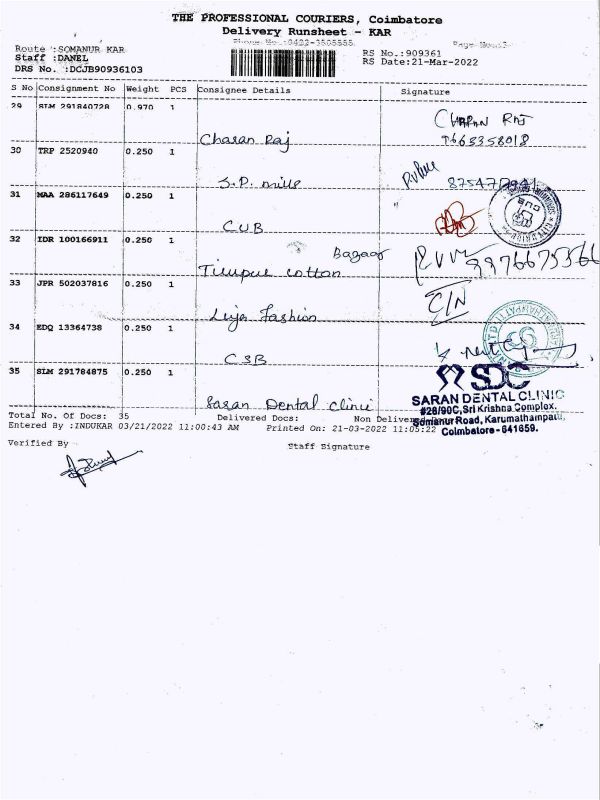 THE PROFESSIONAL COURIERS, Coimbatore
Delivery Runsheet - KAR
Phone No.:0422-3505555
Route :SOMANUR KAR
RS No.:909361
Staff :DANEL
RS Date:21-Mar-2022
DRS No. :DCJB90936103
S No Consignment No Weight PCS Consignee Details Signature
29 SLM 291840728 0.970 1
Charan Raj CHARAN RAJ
30 TRP 2520940 0.250 1
S.P. mills
31 MAA 286117649 0.250 1
CUB
32 IDR 100166911 0.250 1
Bazaar
Tirupur cotton
33 JPR 502037816 0.250 1
C/N
Fashion
34 EDQ 13364738 0.250 1
CSB
35 SLM 291784875 0.250 1
SDC
Saran Dental clinic
SARAN DENTAL CLINIC
#28/90C, Sri Krishna Complex.
Somanur Road, Karumathampatti,
Coimbatore - 641659.
Total No. Of Docs: 35 Delivered Docs: Non Delivered
Entered By :INDUKAR 03/21/2022 11:00:43 AM Printed On: 21-03-2022 11:05:22
Verified By Staff Signature